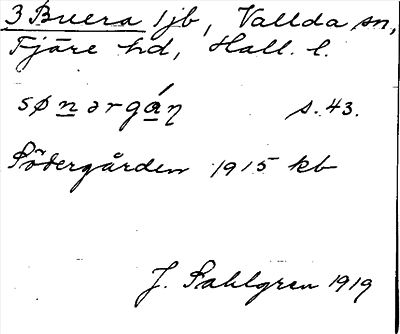 3 Buera 1 jb, Vallda sn,
Fjäre hd, Hall. l.
sønərgán s. 43.
Södergården 1915 kb
J. Sahlgren 1919